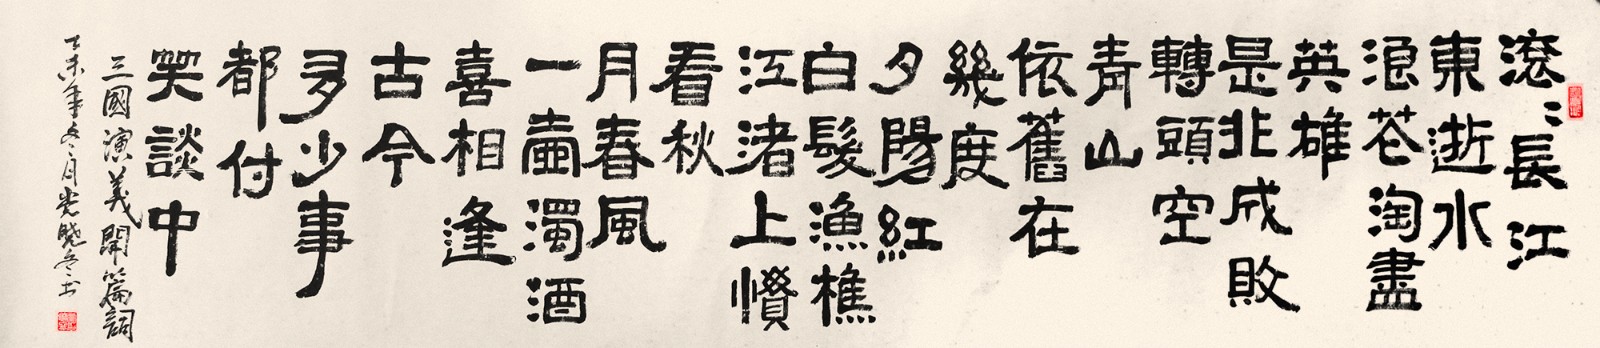 滾〻長江
東逝水
浪花淘盡
英雄
是非成敗
轉頭空
青山
依舊在
幾度
夕陽紅
白髮漁樵
江渚上慣
看秋
月春風
一壺濁酒
喜相逢
古今
多少事
都付
笑談中
三國演義開篇詞
未年冬月曉冬书